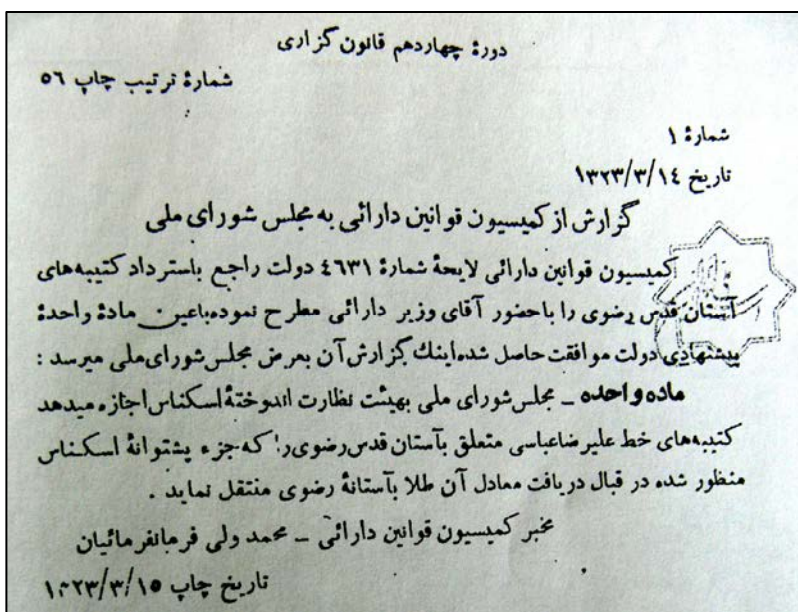 دورهٔ چهاردهم قانون گزاری
شمارهٔ ترتیب چاپ ٥٦
شمارهٔ ١
تاریخ ١٣٢٣/٣/١٤
گزارش از کمیسیون قوانین دارائی به مجلس شورای ملی
کمیسیون قوانین دارائی لایحهٔ شمارهٔ ٤٦٣١ دولت راجع باسترداد کتیبه‌های
آستان قدس رضوی را باحضور آقای وزیر دارائی مطرح نموده باعین مادهٔ واحدهٔ
پیشنهادی دولت موافقت حاصل شده اینك گزارش آن بعرض مجلس شورای ملی میرسد :
ماده واحده ـ مجلس شورای ملی بهیئت نظارت اندوختهٔ اسکناس اجازه میدهد
کتیبه‌های خط علیرضاعباسی متعلق بآستان قدس رضوی را که جزء پشتوانهٔ اسکناس
منظور شده در قبال دریافت معادل آن طلا بآستانهٔ رضوی منتقل نماید .
مخبر کمیسیون قوانین دارائی ـ محمد ولی فرمانفرمائیان
تاریخ چاپ ١٣٢٣/٣/١٥